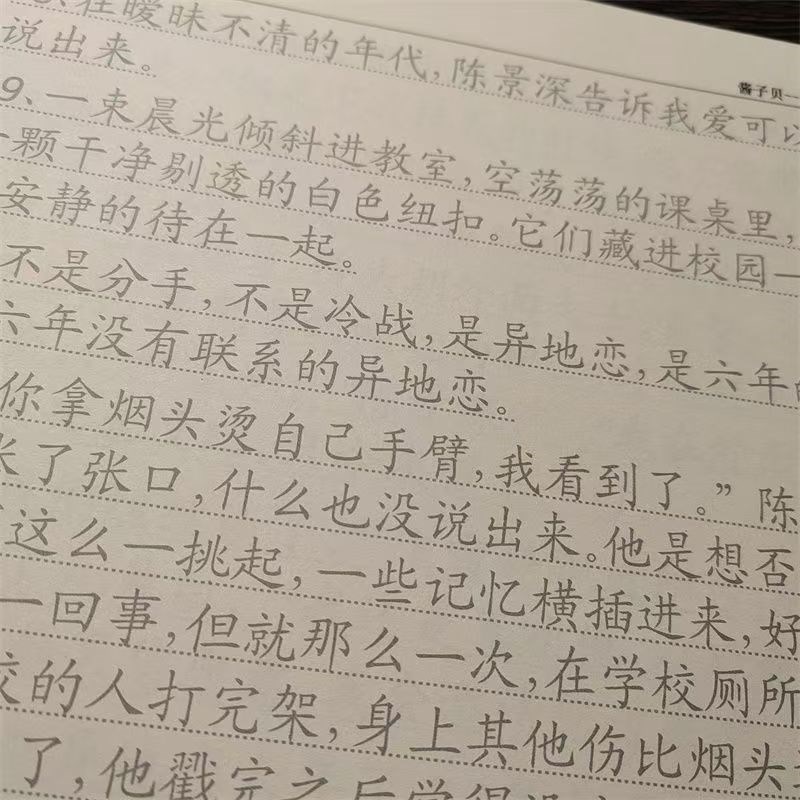 酱子贝一
在暧昧不清的年代,陈景深告诉我爱可以
说出来。
9、一束晨光倾斜进教室,空荡荡的课桌里,
一颗干净剔透的白色纽扣。它们藏进校园一
安静的待在一起。
不是分手,不是冷战,是异地恋,是六年的
六年没有联系的异地恋。
你拿烟头烫自己手臂,我看到了。”陈
张了张口,什么也没说出来。他是想否
这么一挑起,一些记忆横插进来,好
一回事,但就那么一次,在学校厕所
校的人打完架,身上其他伤比烟头
了,他戳完之后觉得没